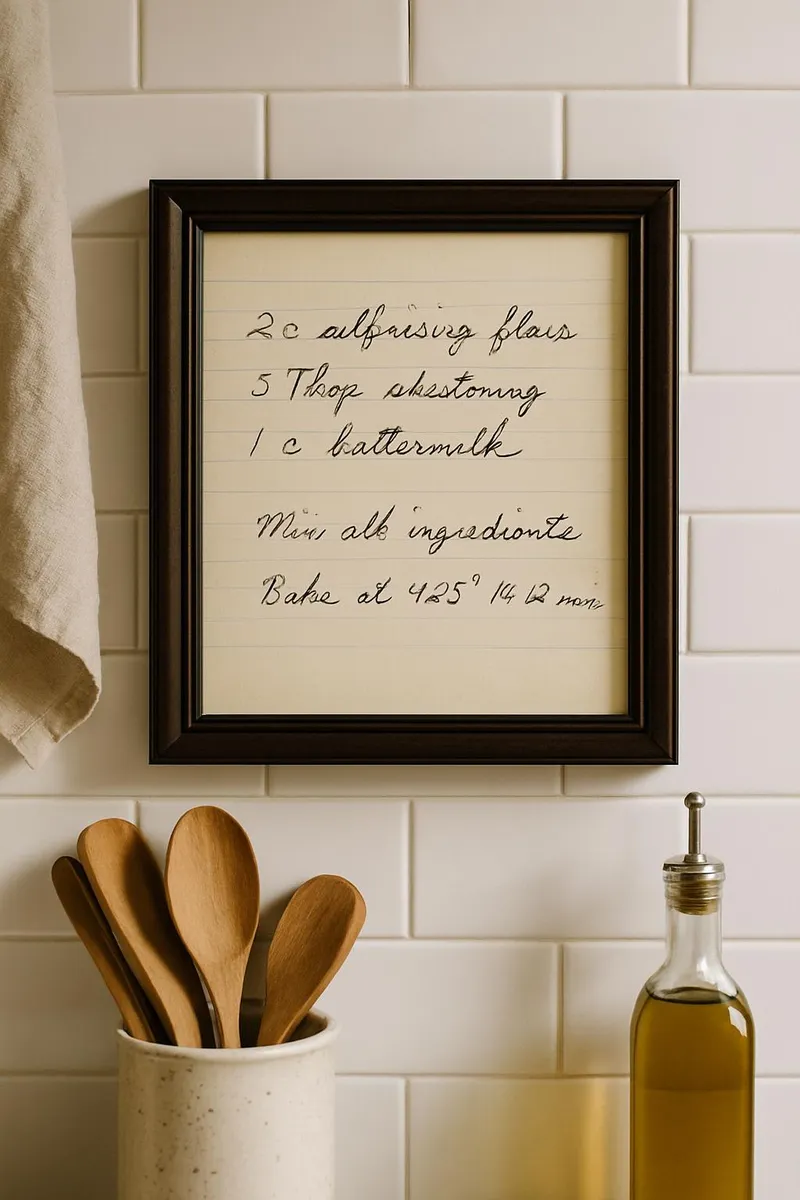 2 c alfraising flaus
5 Tbop shestoning
1 c battermilk
Mix alb ingredionte
Bake at 425° 12